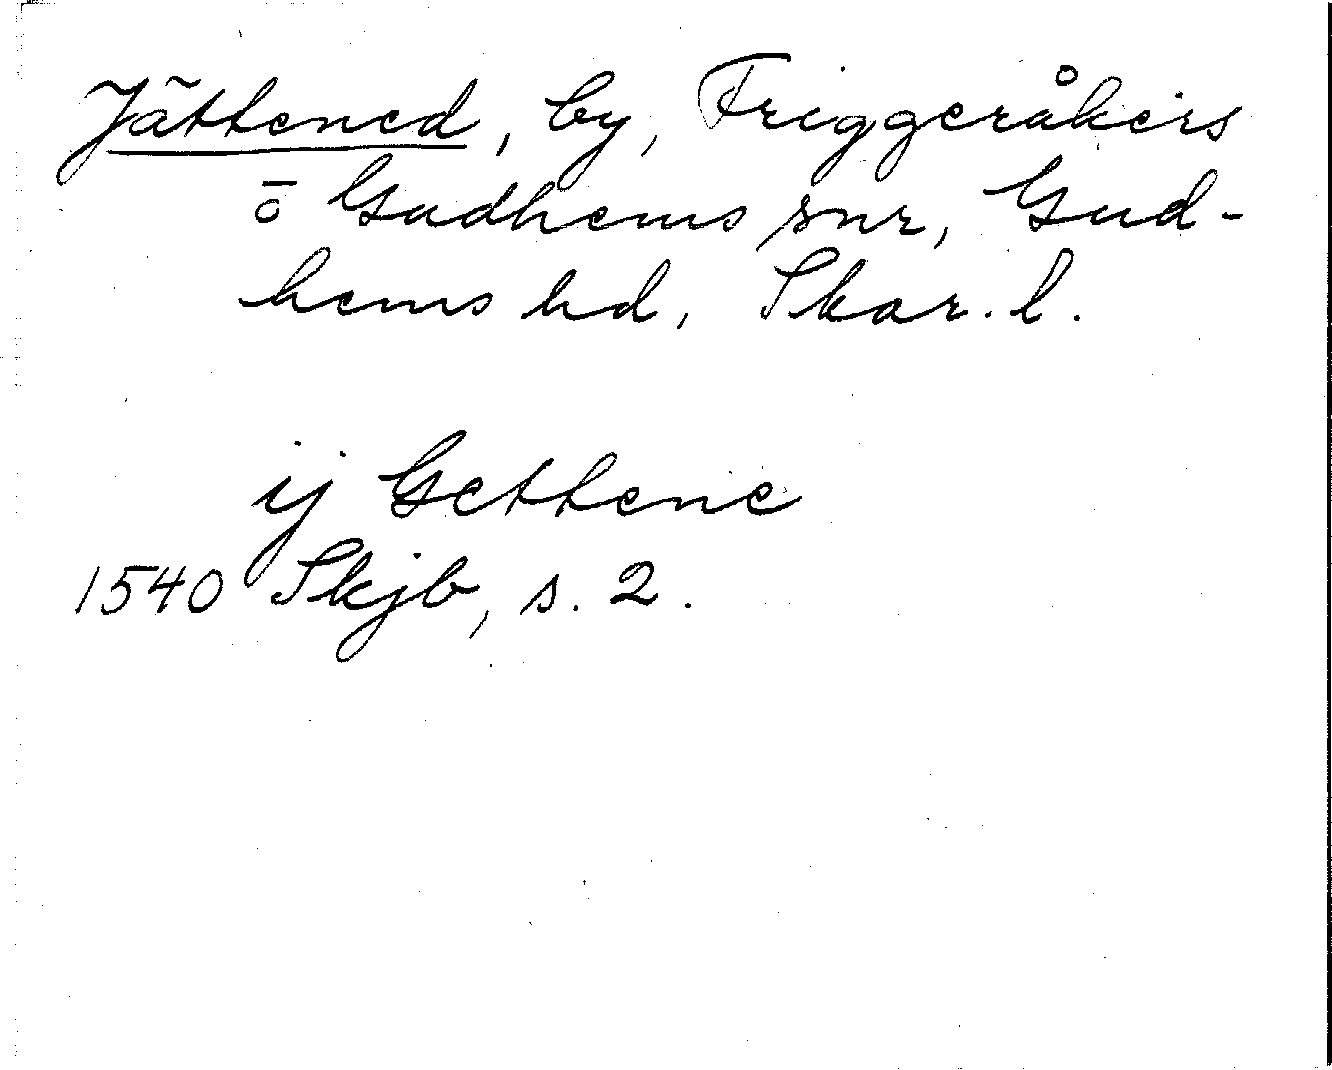 Jättened, by, Friggeråkers
ō Gudhems snr, Gud-
hems hd, Skar. l.
ij Gettene
1540 Skjb, s. 2.